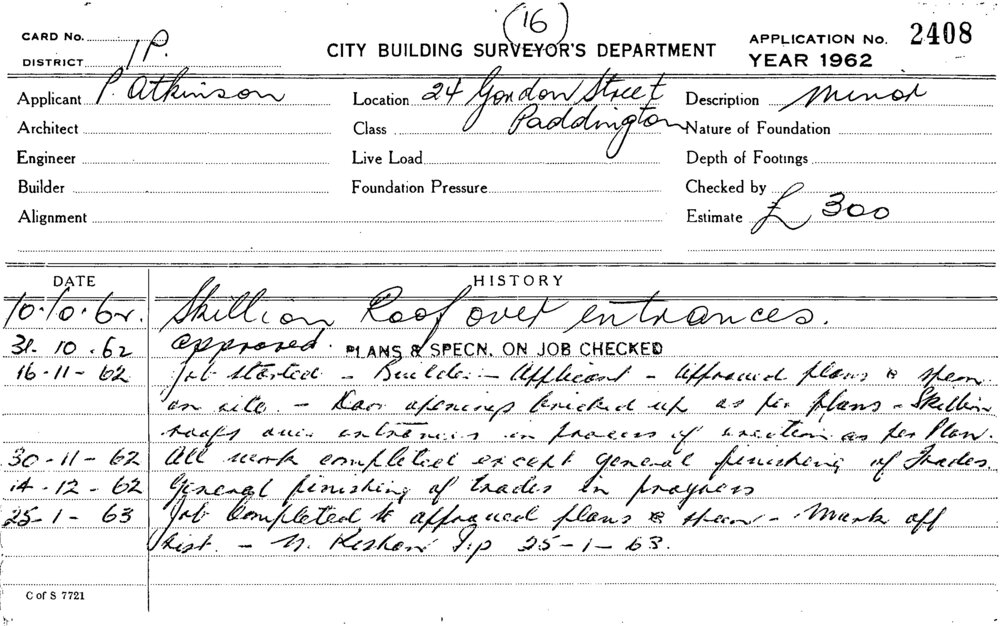 (16)
CARD No.
DISTRICT 1P.
CITY BUILDING SURVEYOR'S DEPARTMENT
APPLICATION No. 2408
YEAR 1962
Applicant P. Atkinson Location 24 Gordon Street Description Minor
Paddington
Architect Class Nature of Foundation
Engineer Live Load Depth of Footings
Builder Foundation Pressure Checked by
Alignment Estimate £ 300
DATE HISTORY
10.10.62. Skillion Roof over entrances.
31.10.62 approved. PLANS & SPECN. ON JOB CHECKED
16-11-62 Job started - Builder - Applicant - approved plans & specn
on site. - Door openings bricked up as per plans - Skillion
roofs over entrances in process of erection as per Plan.
30-11-62 All work completed except general finishing of Trades.
14-12-62 General finishing of trades in progress
25-1-63 Job Completed to approved plans & specn - Mark off
list. - 25-1-63.
C of S 7721